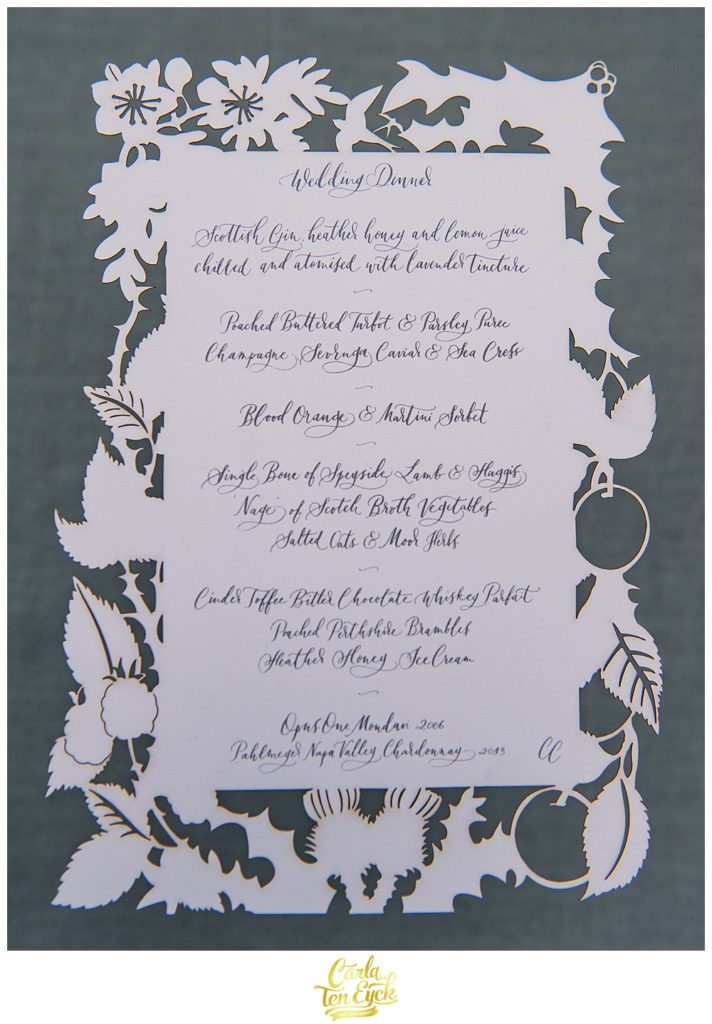 Wedding Dinner
Scottish Gin, heather honey and lemon juice
chilled and atomised with lavender tincture
~
Poached Buttered Turbot & Parsley Puree
Champagne, Sevruga Caviar & Sea Cress
~
Blood Orange & Martini Sorbet
~
Single Bone of Speyside Lamb & Haggis
'Nage' of Scotch Broth Vegetables
Salted Oats & Moor Herbs
~
Cinder Toffee Bitter Chocolate Whiskey Parfait
Poached Perthshire Brambles
Heather Honey Ice Cream
~
Opus One Mondavi 2006
Pahlmeyer Napa Valley Chardonnay 2013
CC
Carla
Ten Eyck
PHOTOGRAPHY